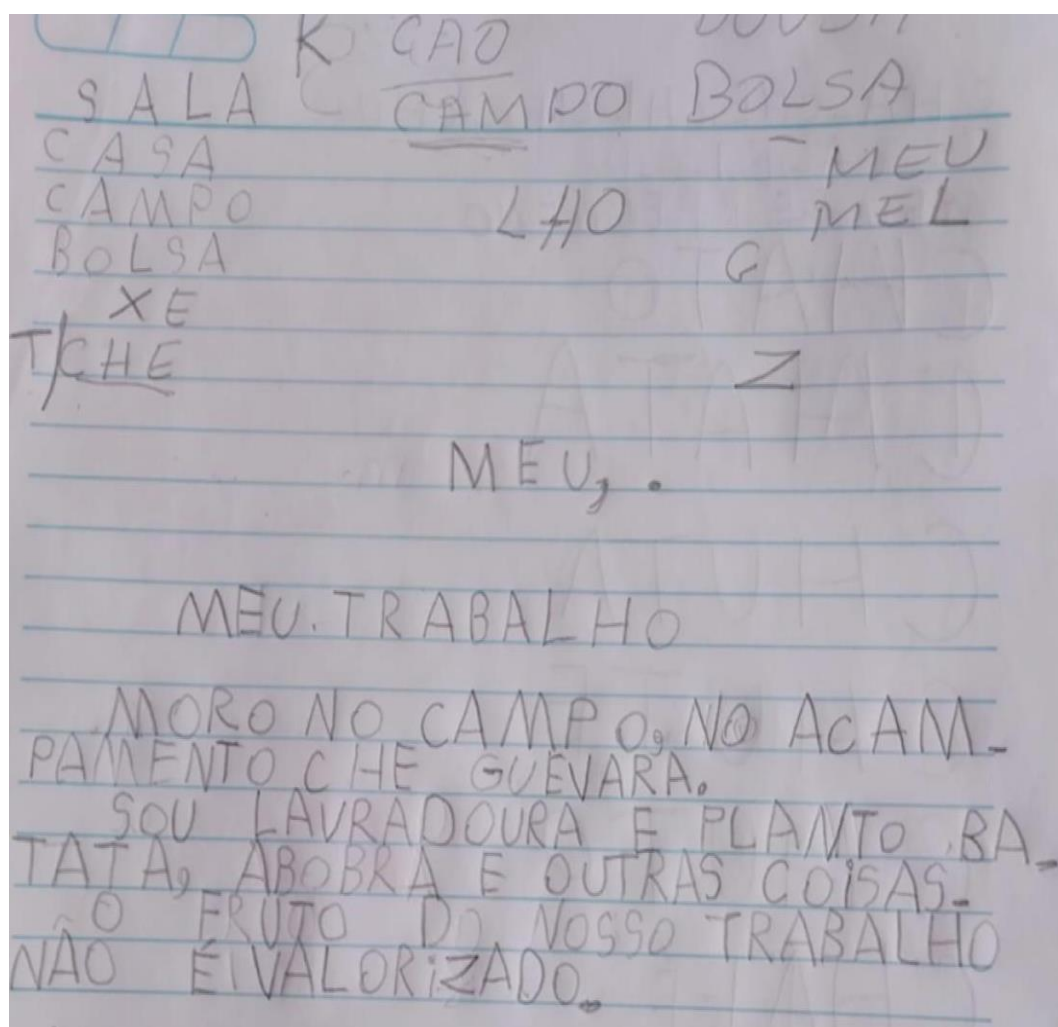 K CAO
SALA C CAMPO BOLSA
CASA MEU
CAMPO LHO MEL
BOLSA G
XE
T/CHE Z
MEU, .
MEU. TRABALHO
MORO NO CAMPO, NO ACAM-
PAMENTO CHE GUEVARA.
SOU LAVRADOURA E PLANTO BA-
TATA, ABOBRA E OUTRAS COISAS.
O FRUTO DO NOSSO TRABALHO
NÃO É VALORIZADO.